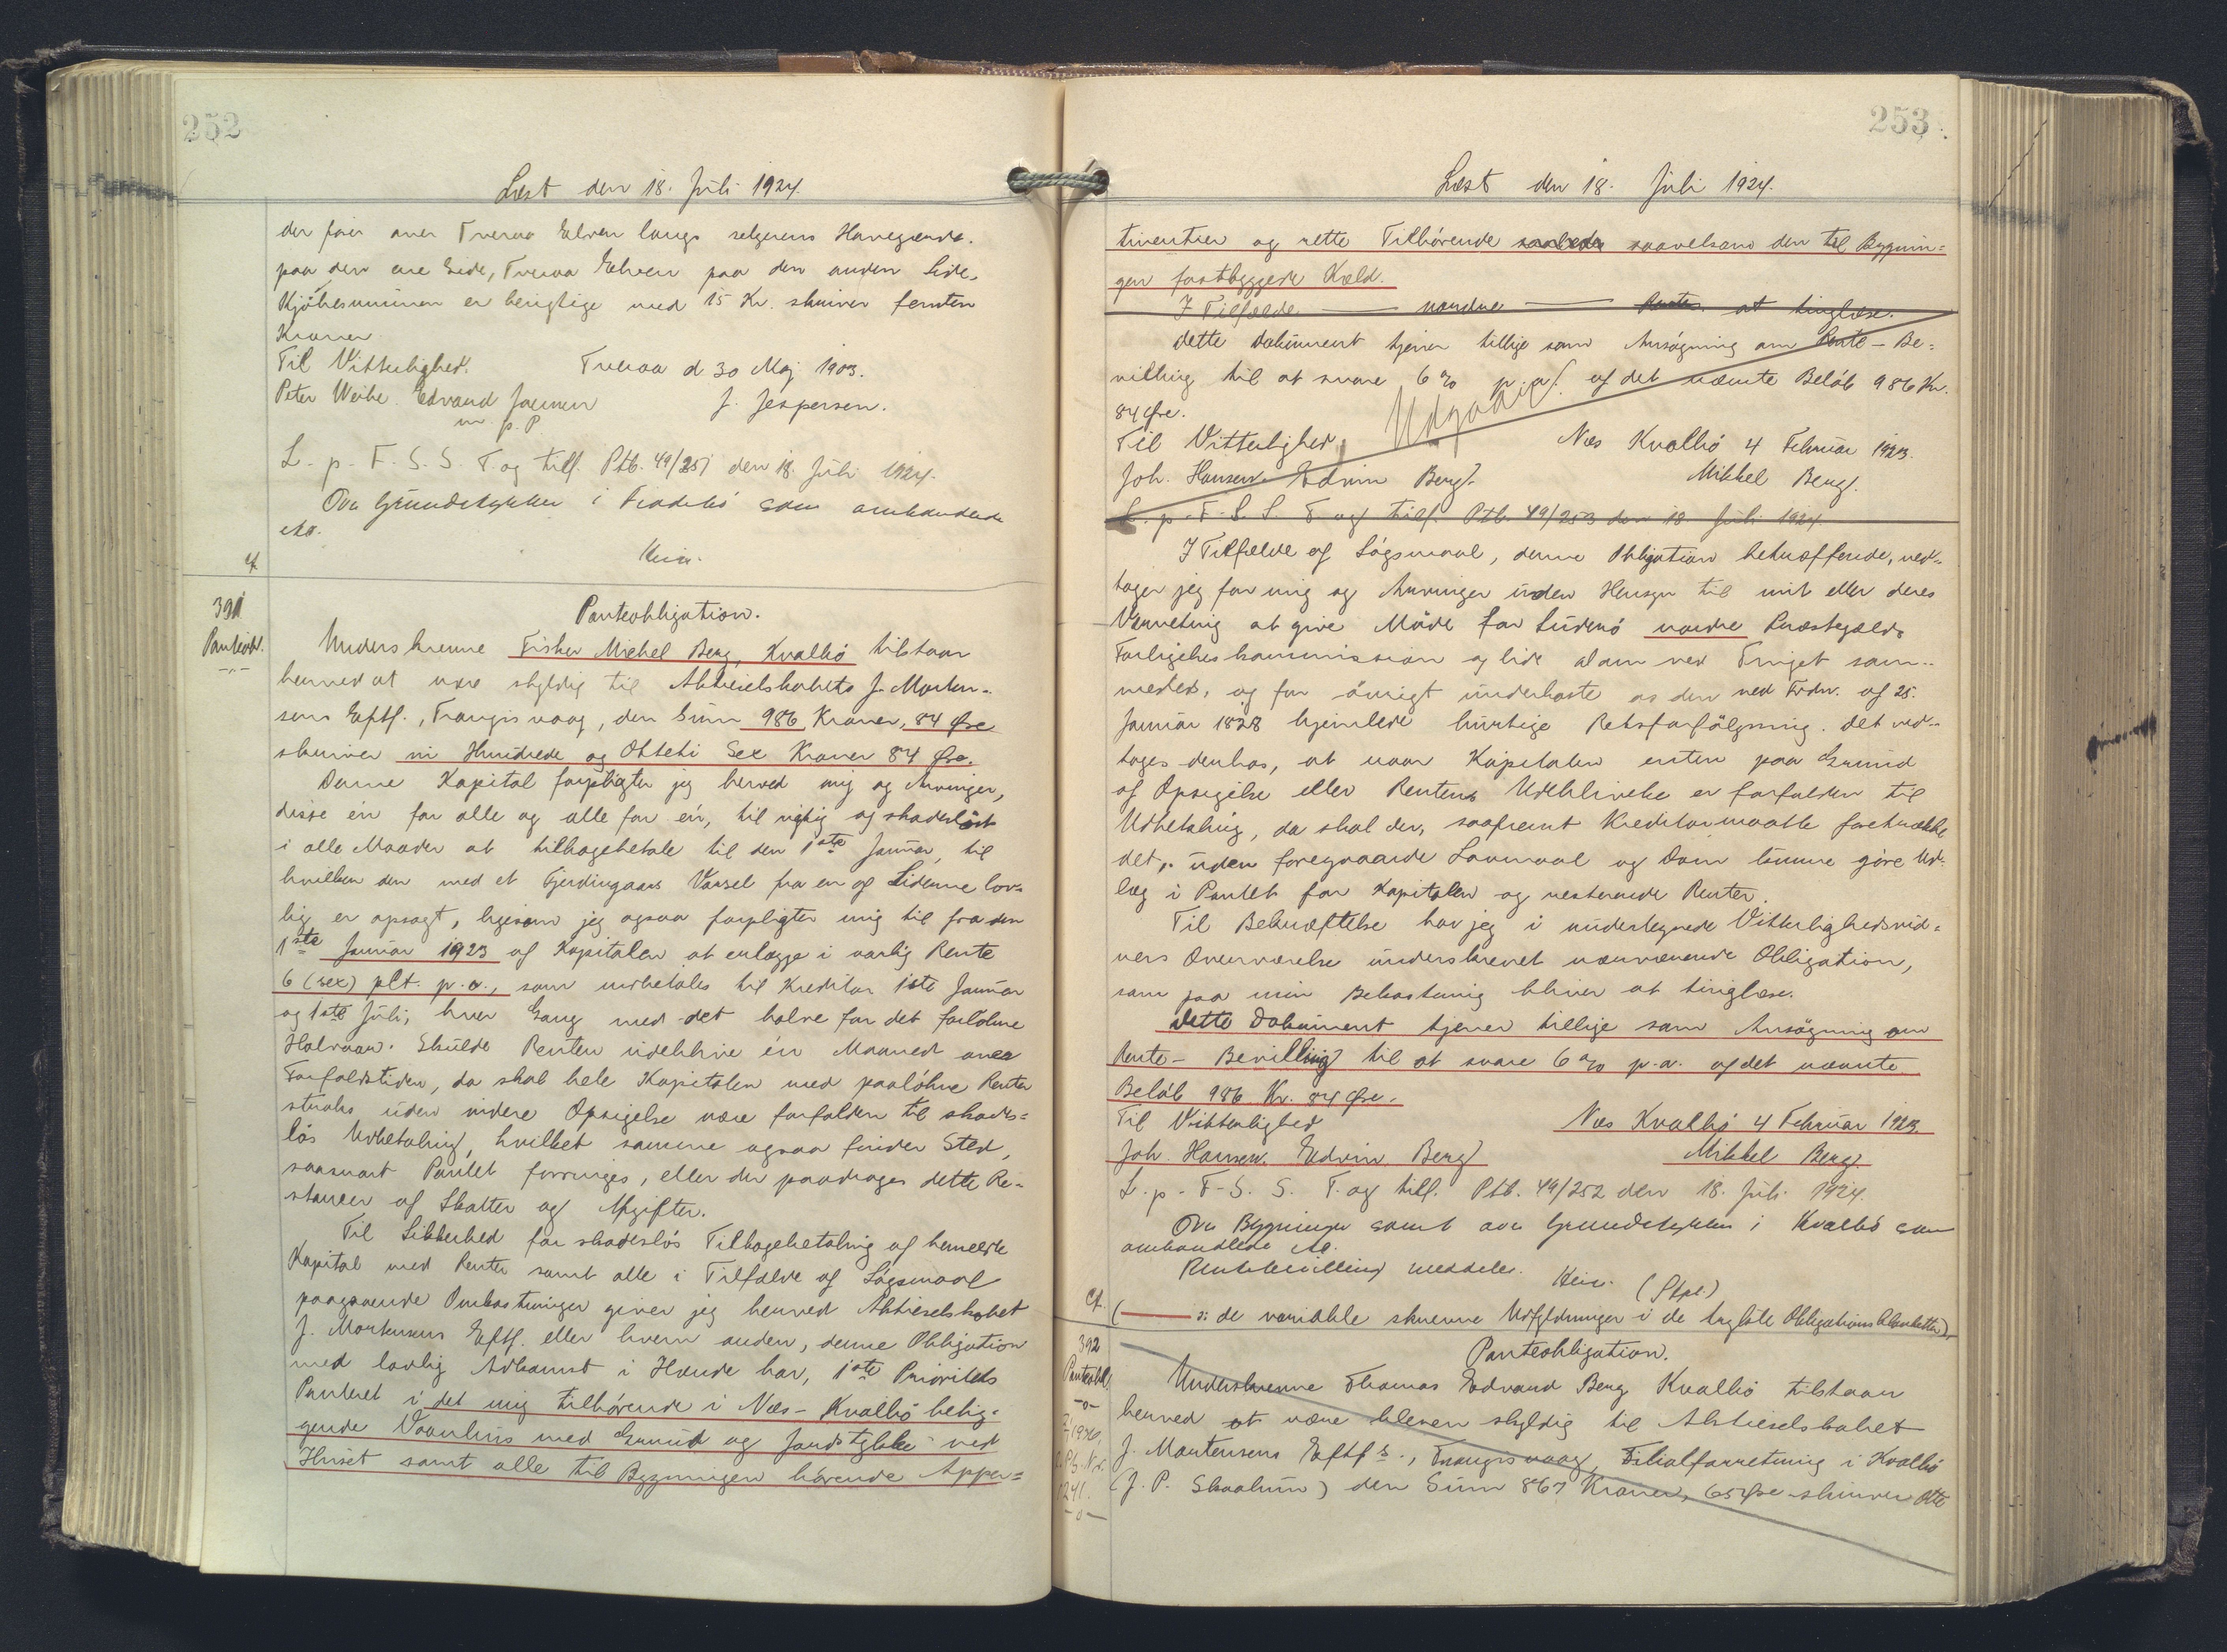 252
Læst den 18. Juli 1924.
der fører over Tveraa Elven langs selgerens Havegærde.
paa den ene Side, Tveraa Elven paa den anden Side,
Kjöbesummen er berigtige med 15 Kr. skriver femten
Kroner.
Til Vitterlighed. Tveraa d 30 Maj 1903.
Peter Weihe. Edvard Joensen J. Jespersen.
m. p. P
L. p. F. S. S. T. og till. Ptb. 49/251 den 18. Juli 1924.
Ova Grundstykker i Frodebö som ombandede
Att.
Heim.
cf.
391
Panteobl.
-"-
Panteobligation.
Underskrevne Fisker Michel Berg, Kvalbö tilstaar
herved at være skyldig til Aktieselskabets J. Morten-
sens Eftf., Trangisvaag, den Sum 986 Kroner, 84 Øre
skriver ni Hundrede og Otteti Sex Kroner 84 Øre.
Denne Kapital forpligter jeg herved mig og Arvinger,
disse én for alle og alle for én, til rigtig og skadeslöst
i alle Maader at tilbagebetale til den 1ste Januar, til
hvilken den med et Fjerdingaars Varsel fra en af Siderne lov-
lig er opsagt, ligesom jeg ogsaa forpligter mig til fra den
1ste Januar 1923 af Kapitalen at erlægge i aarlig Rente
6 (sex) pCt. p. a., som indbetales til Kreditor 1ste Januar
og 1ste Juli, hver Gang med det halve for det forlöbne
Halvaar. Skulde Renten udeblive én Maaned over
Forfaldstiden, da skal hele Kapitalen med paalöbne Renter
straks uden videre Opsigelse være forfalden til skades-
lös Udbetaling, hvilket samme ogsaa finder Sted,
saasnart Pantet forringes, eller der paadrages dette Re-
stancer af Skatter og Afgifter.
Til Sikkerhed for skadeslös Tilbagebetaling af bemeldte
Kapital med Renter samt alle i Tilfælde af Lögsmaal
paagaaende Omkostninger giver jeg herved Aktieselskabet
J. Mortensens Eftf. eller hvem anden, denne Obligation
med lovlig Adkomst i Hænde har, 1ste Prioritets
Panteret i det mig tilhörende i Næs - Kvalbö belig-
gende Vaanhus med Grund og Jordstykke ved
Huset samt alle til Bygningen hörende Apper-
253
Læst den 18. Juli 1924.
tinentier og rette Tilhörende saavelsom den til Bygnin-
gen fastbyggede Kæld.
I Tilfælde — nordre — Renter at tinglæse.
dette Dokument tjener tillige som Ansögning om Rente - Be-
villing til at svare 6 % p. a. af det nævnte Belöb 986 Kr.
84 Øre.
Udgaar
Til Vitterlighed, Næs Kvalbö 4 Februar 1923.
Joh. Hansen. Edvin Berg. Mikkel Berg.
L. p. F. S. S. T. og till. Ptb. 49/253 den 18. Juli 1924.
I Tilfælde af Lögsmaal, denne Obligation betræffende, ved-
tager jeg for mig og Arvinger uden Hensyn til mit eller deres
Værneting at give Möde for Suderö nordre Præstegælds
Forligelseskommission og lide Dom ved Tinget sam-
mested, og for övrigt underkaste os den ved Frdn. af 25.
Januar 1828 hjemlede hurtige Retsforfölgning. det ved-
tages derhos, at naar Kapitalen enten paa Grund
af Opsigelse eller Rentens Udeblivelse er forfalden til
Udbetaling, da skal der, saafremt Kreditor maatte foretrække
det, uden foregaaende Lovmaal og Dom kunne göre Ud-
læg i Pantet for Kapitalen og resterende Renter.
Til Bekræftelse har jeg i undertegnede Vitterlighedsvid-
ners Overværelse underskrevet nærværende Obligation,
som paa min Bekostning bliver at tinglæse.
dette Dokument tjener tillige som Ansögning om
Rente - Bevilling til at svare 6 % p. a. af det nævnte
Belöb 986 Kr. 84 Øre.
Til Vitterlighed Næs Kvalbö 4 Februar 1923
Joh. Hansen. Edvin Berg Mikkel Berg.
L. p. F. S. S. T. og till. Ptb. 49/252 den 18. Juli 1924.
Ova Bygninger samt ova Grundstykker i Kvalbö som
ombandlede Att.
Rentebevilling meddeles. Heim. (Stpl.)
cf.
(— ɔ: de variable skrevne Udfyldninger i de trykte Obligationsblanketter)
392
Panteobl.
-o-
1241.
-o-
Panteobligation.
Underskrevne Thomas Edvard Berg Kvalbö tilstaar
herved at være bleven skyldig til Aktieselskabet
J. Mortensens Eftfs., Trangisvaag, Filialforretning i Kvalbö
(J. P. Skaalum) den Sum 867 Kroner, 65 Øre skriver Otte